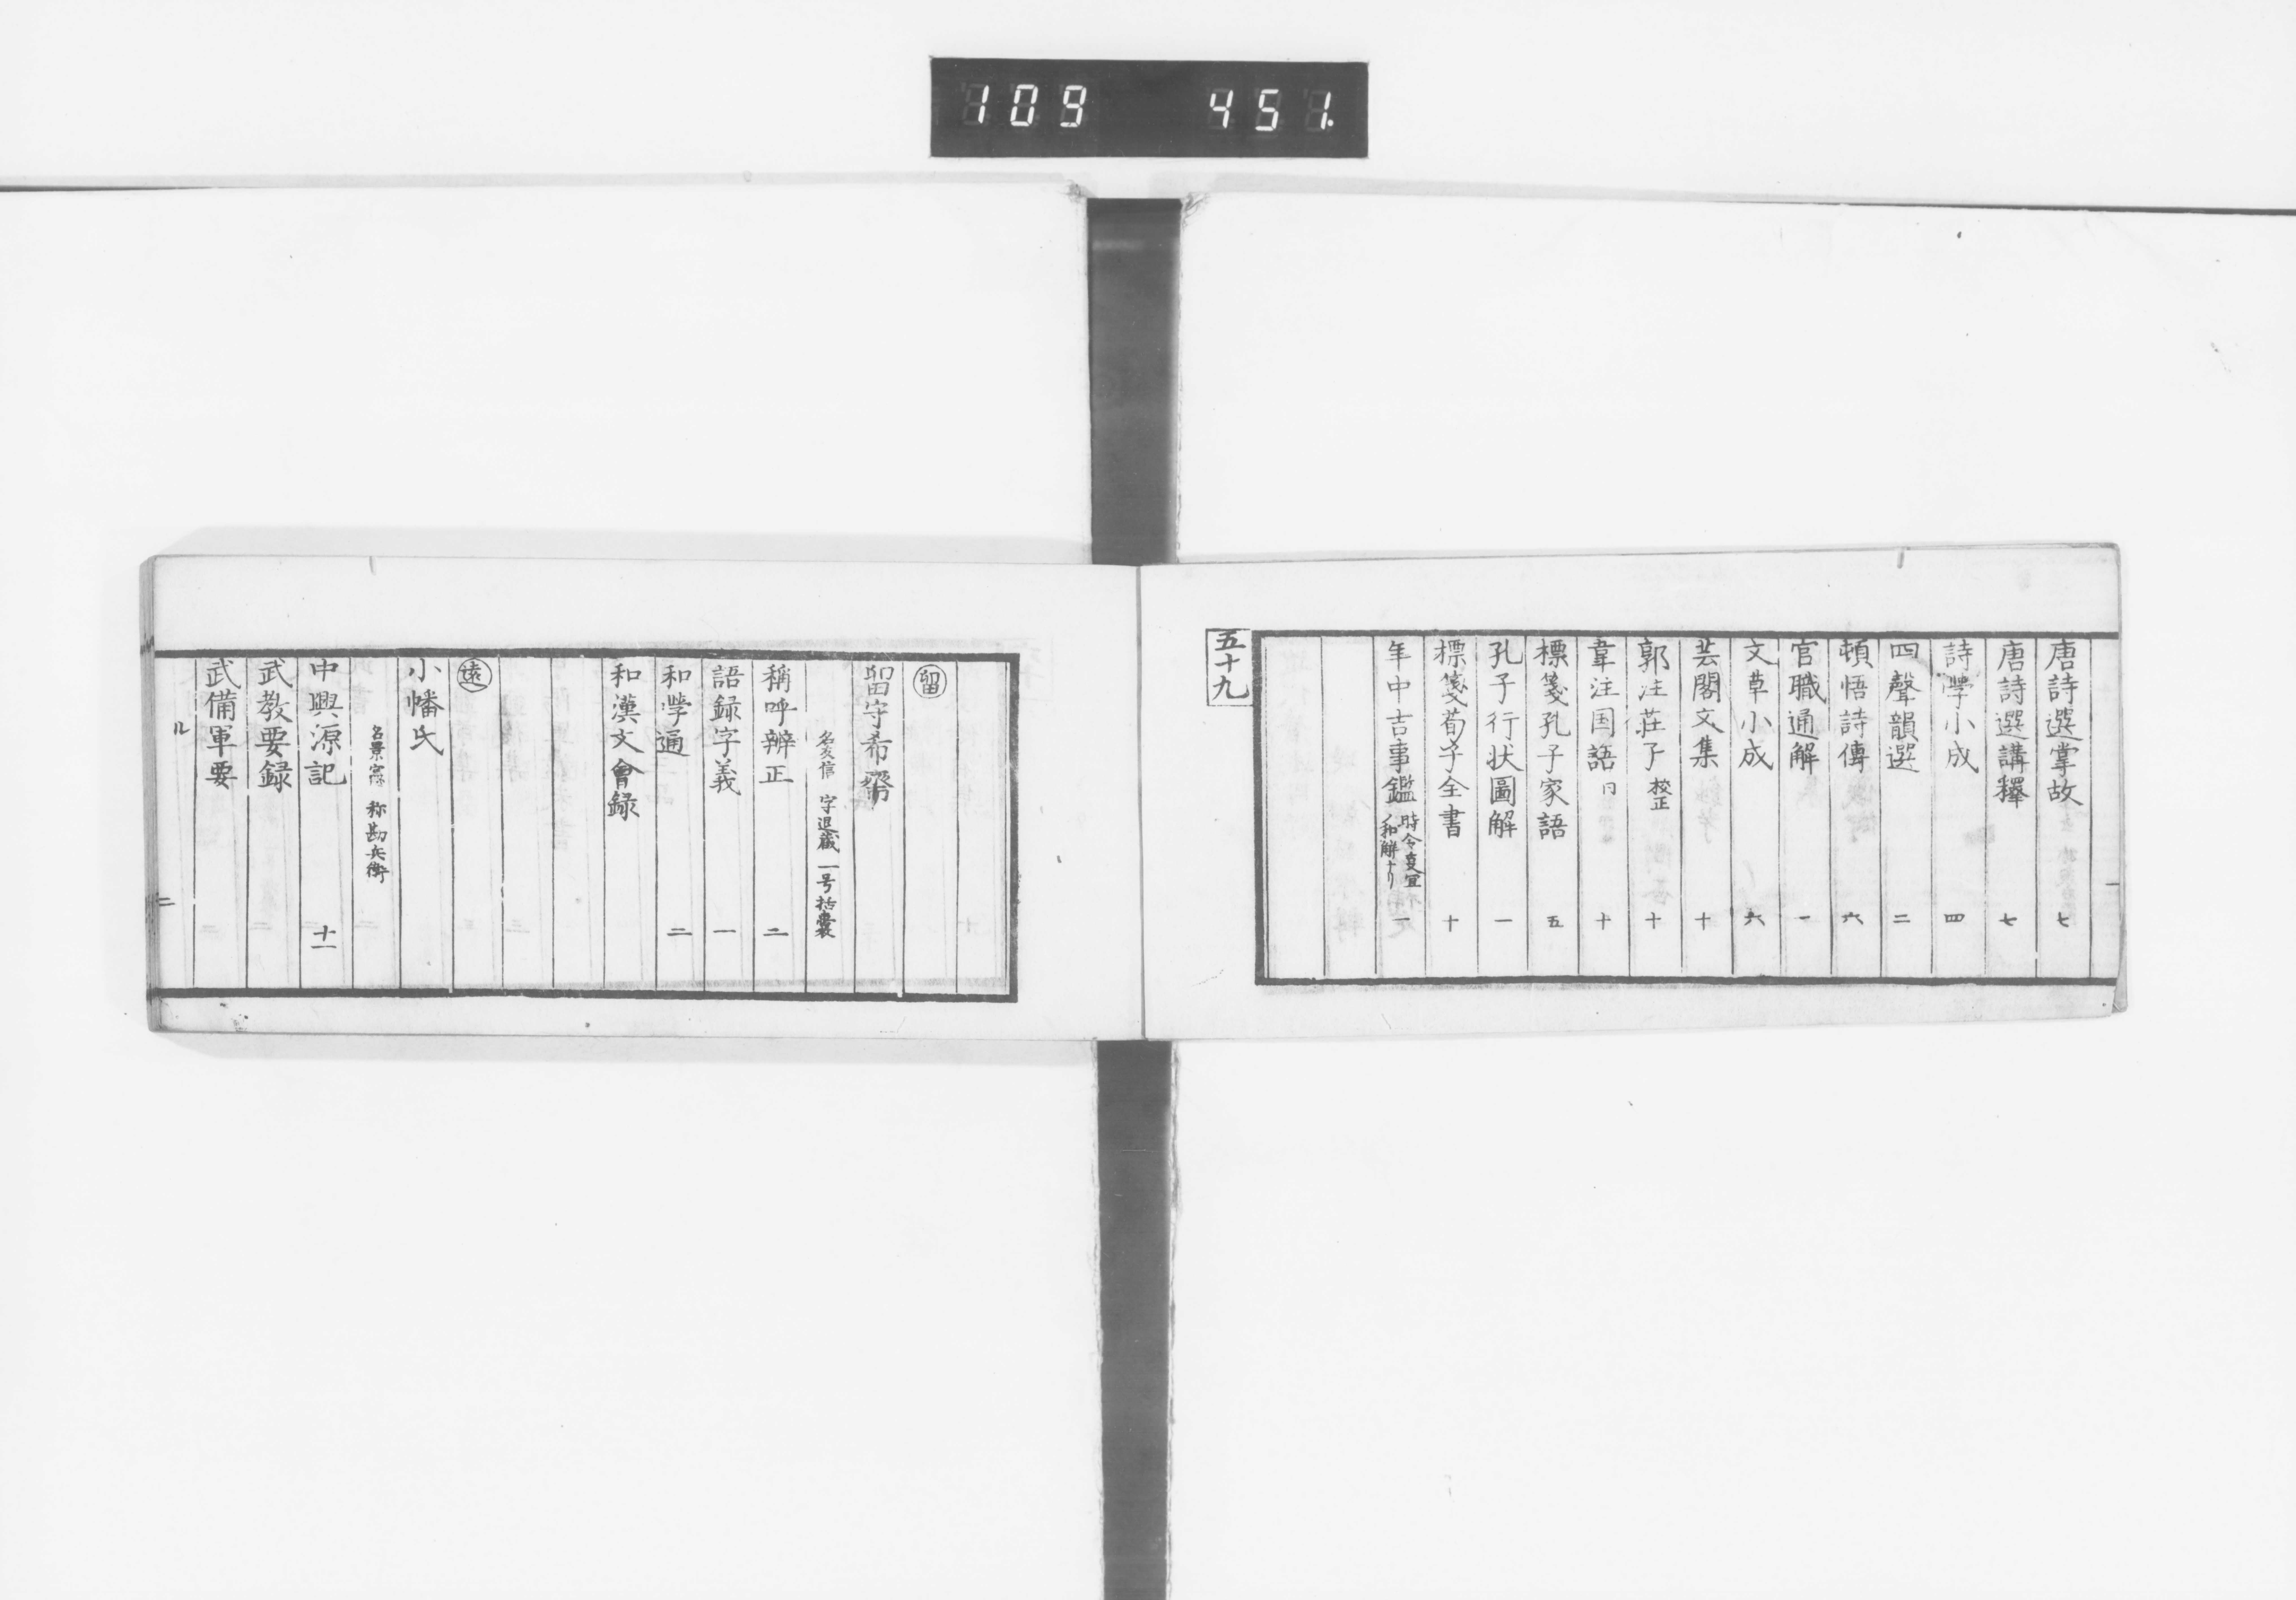 109 451.
唐詩選掌故 七
唐詩選講釋 七
詩學小成 四
四聲韻選 二
頓悟詩傳 六
官職通解 一
文草小成 六
芸閣文集 十
郭注莊子 校正 十
韋注国語 十
標箋孔子家語 五
孔子行状圖解 一
標箋荀子全書 十
年中吉事鑑 時令 和解 一
五十九
留
留守希齋
名友信 字退藏 一号括囊
稱呼辨正 二
語録字義 一
和學通 二
和漢文會録
遠
小幡氏
名景憲 称勘兵衛
中興源記 十一
武教要録
武備軍要
ル 二